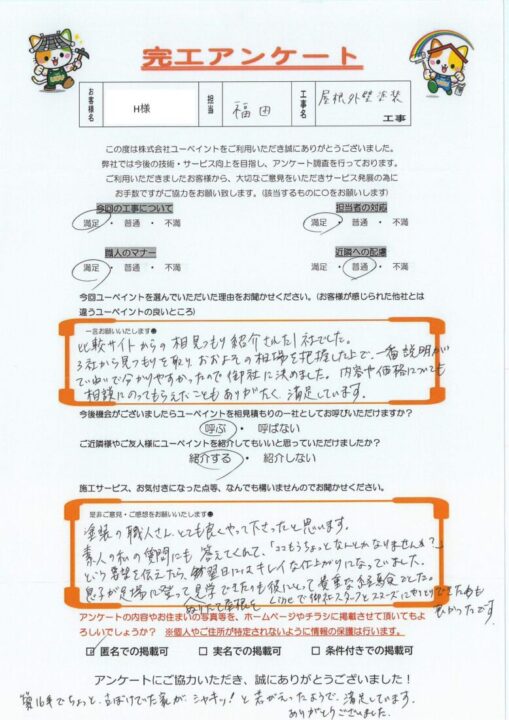 完工アンケート
お客様名
H様
担当
福田
工事名
屋根外壁塗装
工事
この度は株式会社ユーペイントをご利用いただき誠にありがとうございました。
弊社では今後の技術・サービス向上を目指し、アンケート調査を行っております。
ご利用いただきましたお客様から、大切なご意見をいただきサービス発展の為に
お手数ですがご協力をお願い致します。(該当するものに○をお願いします)
今回の工事について
満足 ・ 普通 ・ 不満
担当者の対応
満足 ・ 普通 ・ 不満
職人のマナー
満足 ・ 普通 ・ 不満
近隣への配慮
満足 ・ 普通 ・ 不満
今回ユーペイントを選んでいただいた理由をお聞かせください。(お客様が感じられた他社とは
違うユーペイントの良いところ)
一言お願いいたします●
比較サイトからの相見つもり紹介された1社でした。
3社から見つもりを取り、おおよその相場を把握した上で、一番説明が
ていねいで分かりやすかったので御社に決めました。内容や価格についても
相談にのってもらえたこともありがたく、満足しています。
今後機会がございましたらユーペイントを相見積もりの一社としてお呼びいただけますか?
呼ぶ ・ 呼ばない
ご近隣様やご友人様にユーペイントを紹介してもいいと思っていただけましたか?
紹介する ・ 紹介しない
施工サービス、お気付きになった点等、なんでも構いませんのでお聞かせください。
是非ご意見・ご感想をお願いいたします●
塗装の職人さん、とても良くやって下さったと思います。
素人の私の質問にも答えてくれて、「ココもうちょっとなんとかなりませんか?」
という希望を伝えたら、翌日にはキレイな仕上がりになっていました。
息子が足場に登って見学できたのも彼にとって貴重な経験でした。
Lineで御社スタッフとスムーズにやりとりできたのも
良かったです。
アンケートの内容やお住まいの写真等を、ホームページやチラシに掲載させて頂いてもよ
ろしいでしょうか? ※個人やご住所が特定されないように情報の保護は行います。
☑ 匿名での掲載可 □ 実名での掲載可 □ 条件付きでの掲載可
アンケートにご協力いただき、誠にありがとうございました!
築16年でちょっと古ぼけていた家が、シャキッ!と若がえったようで、満足しています。
ありがとうございました。